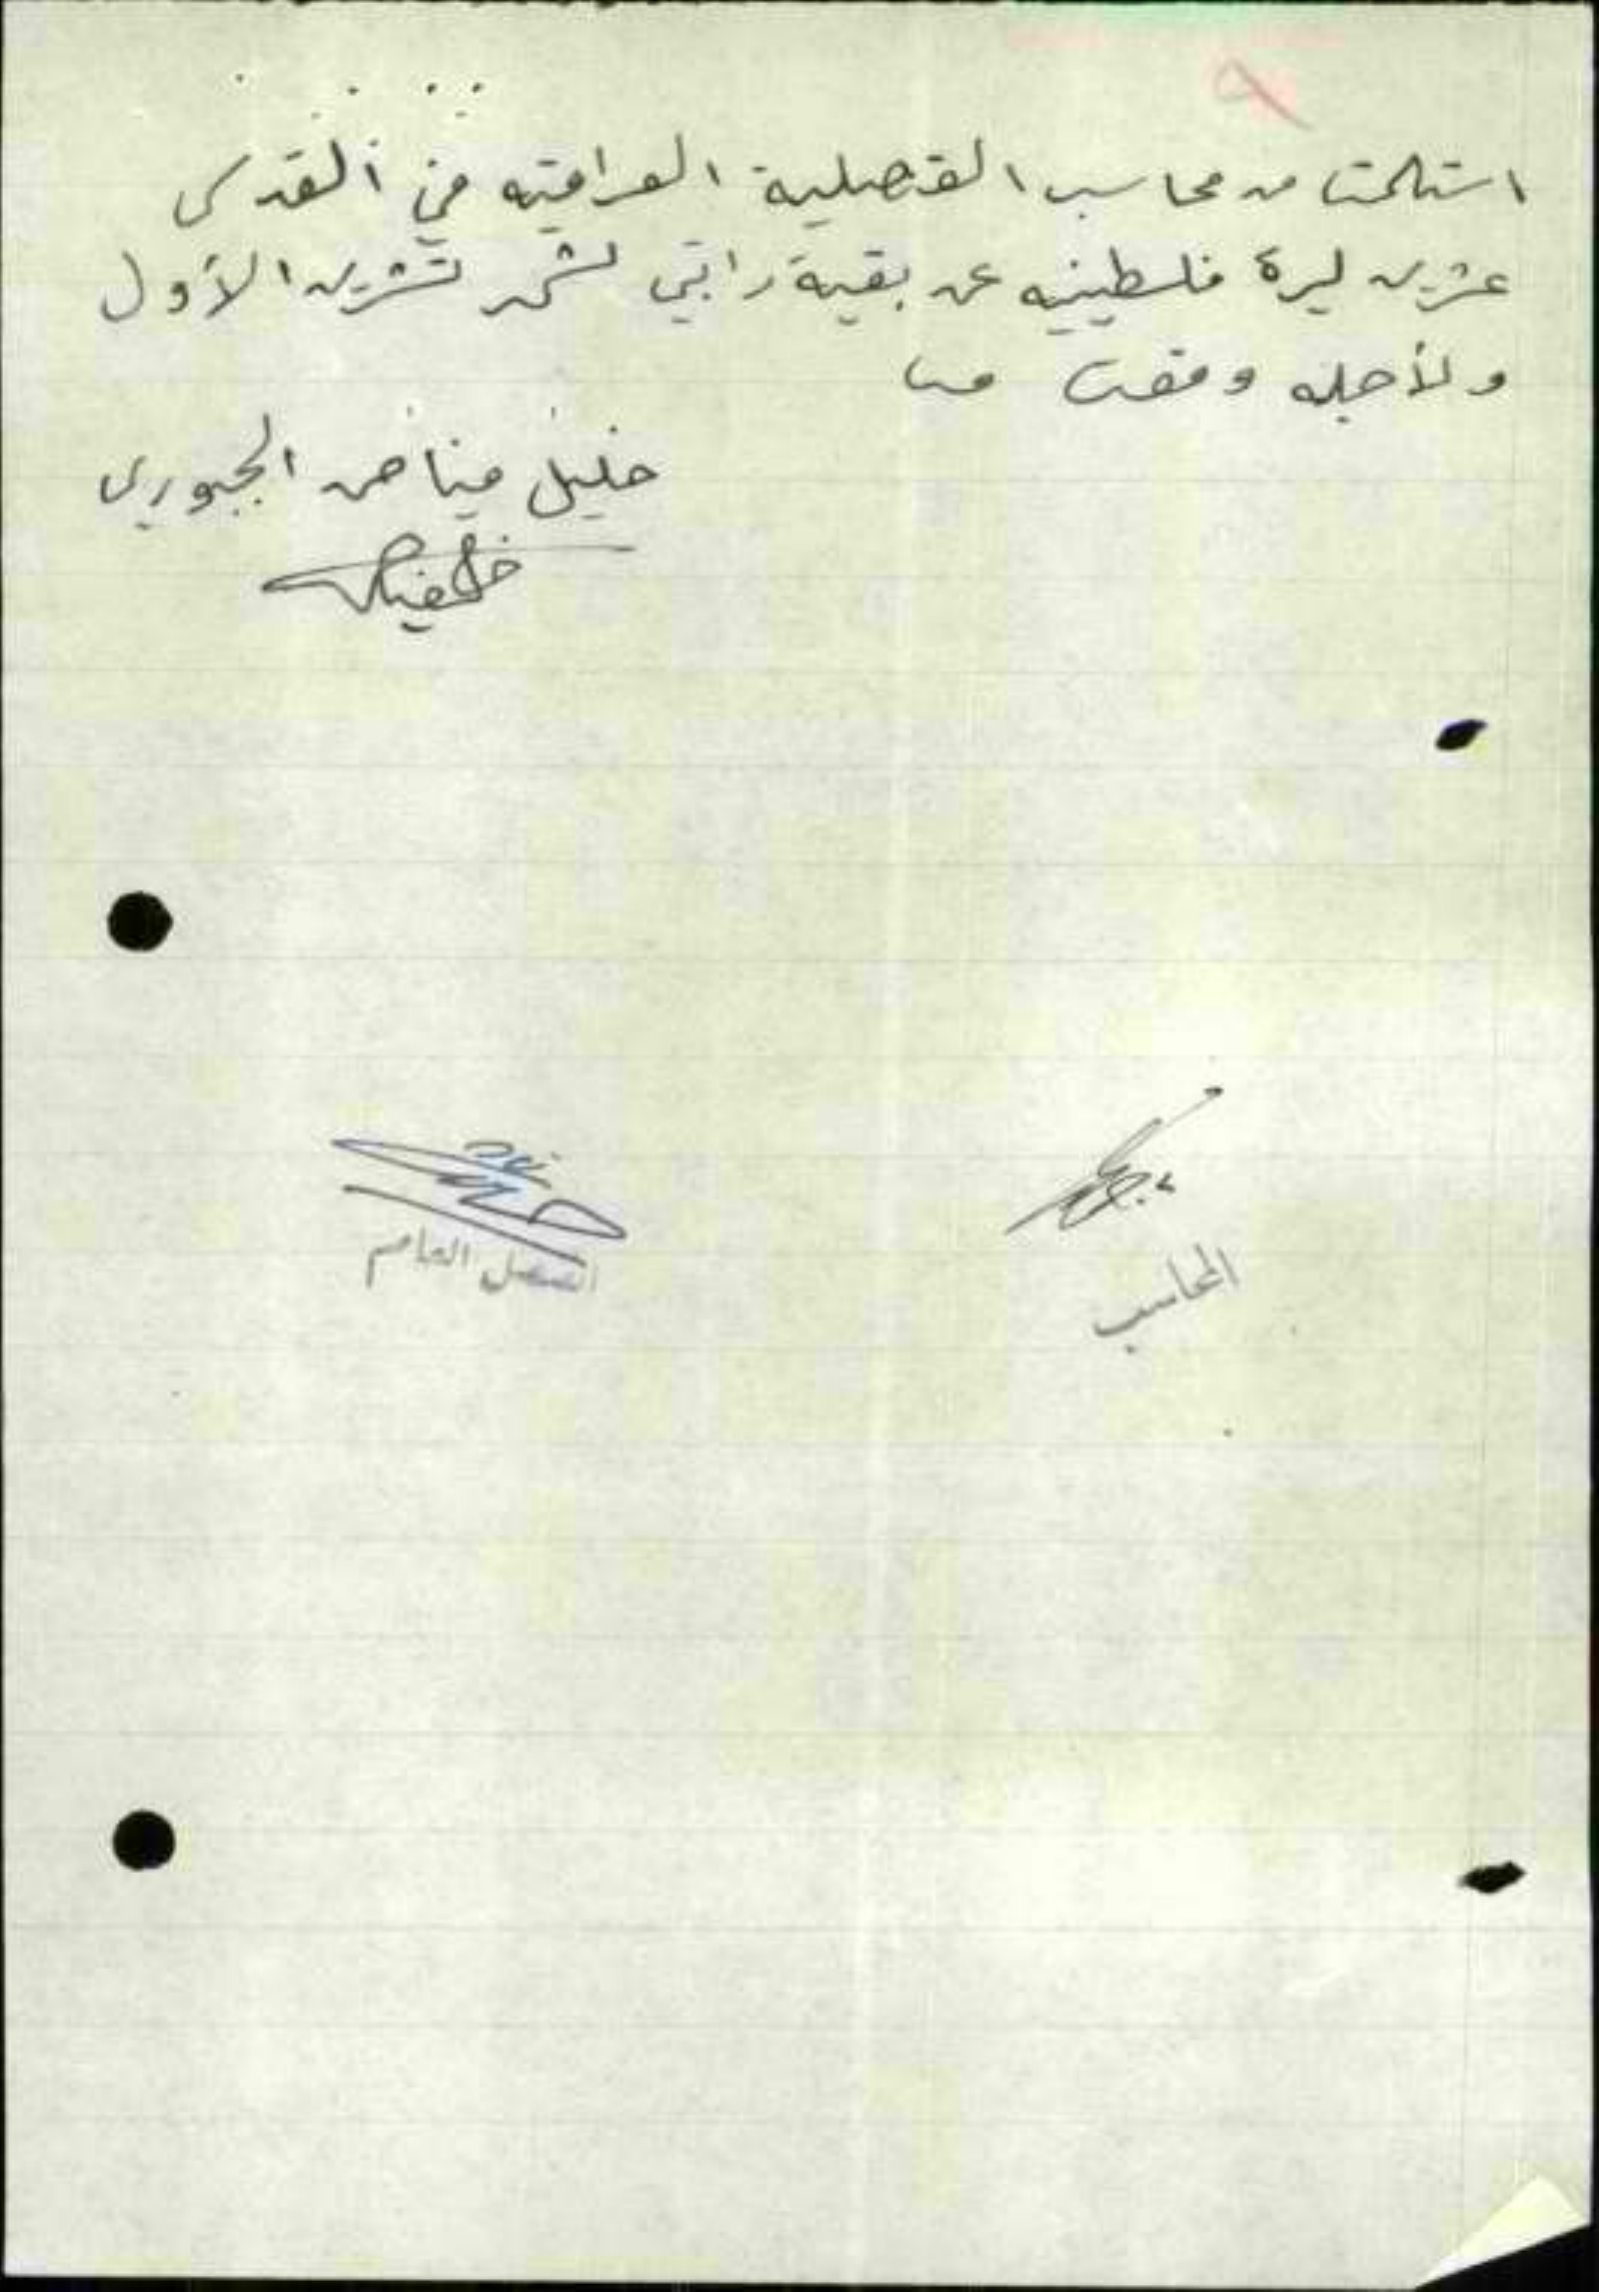 ٩
استلمت من محاسب القنصلية العراقيه في القدس
عشرين ليرة فلسطينيه عن بقية راتبي لشهر تشرين الأول
ولأجله وقعت
خليل الجبوري
المحاسب
القنصل العام